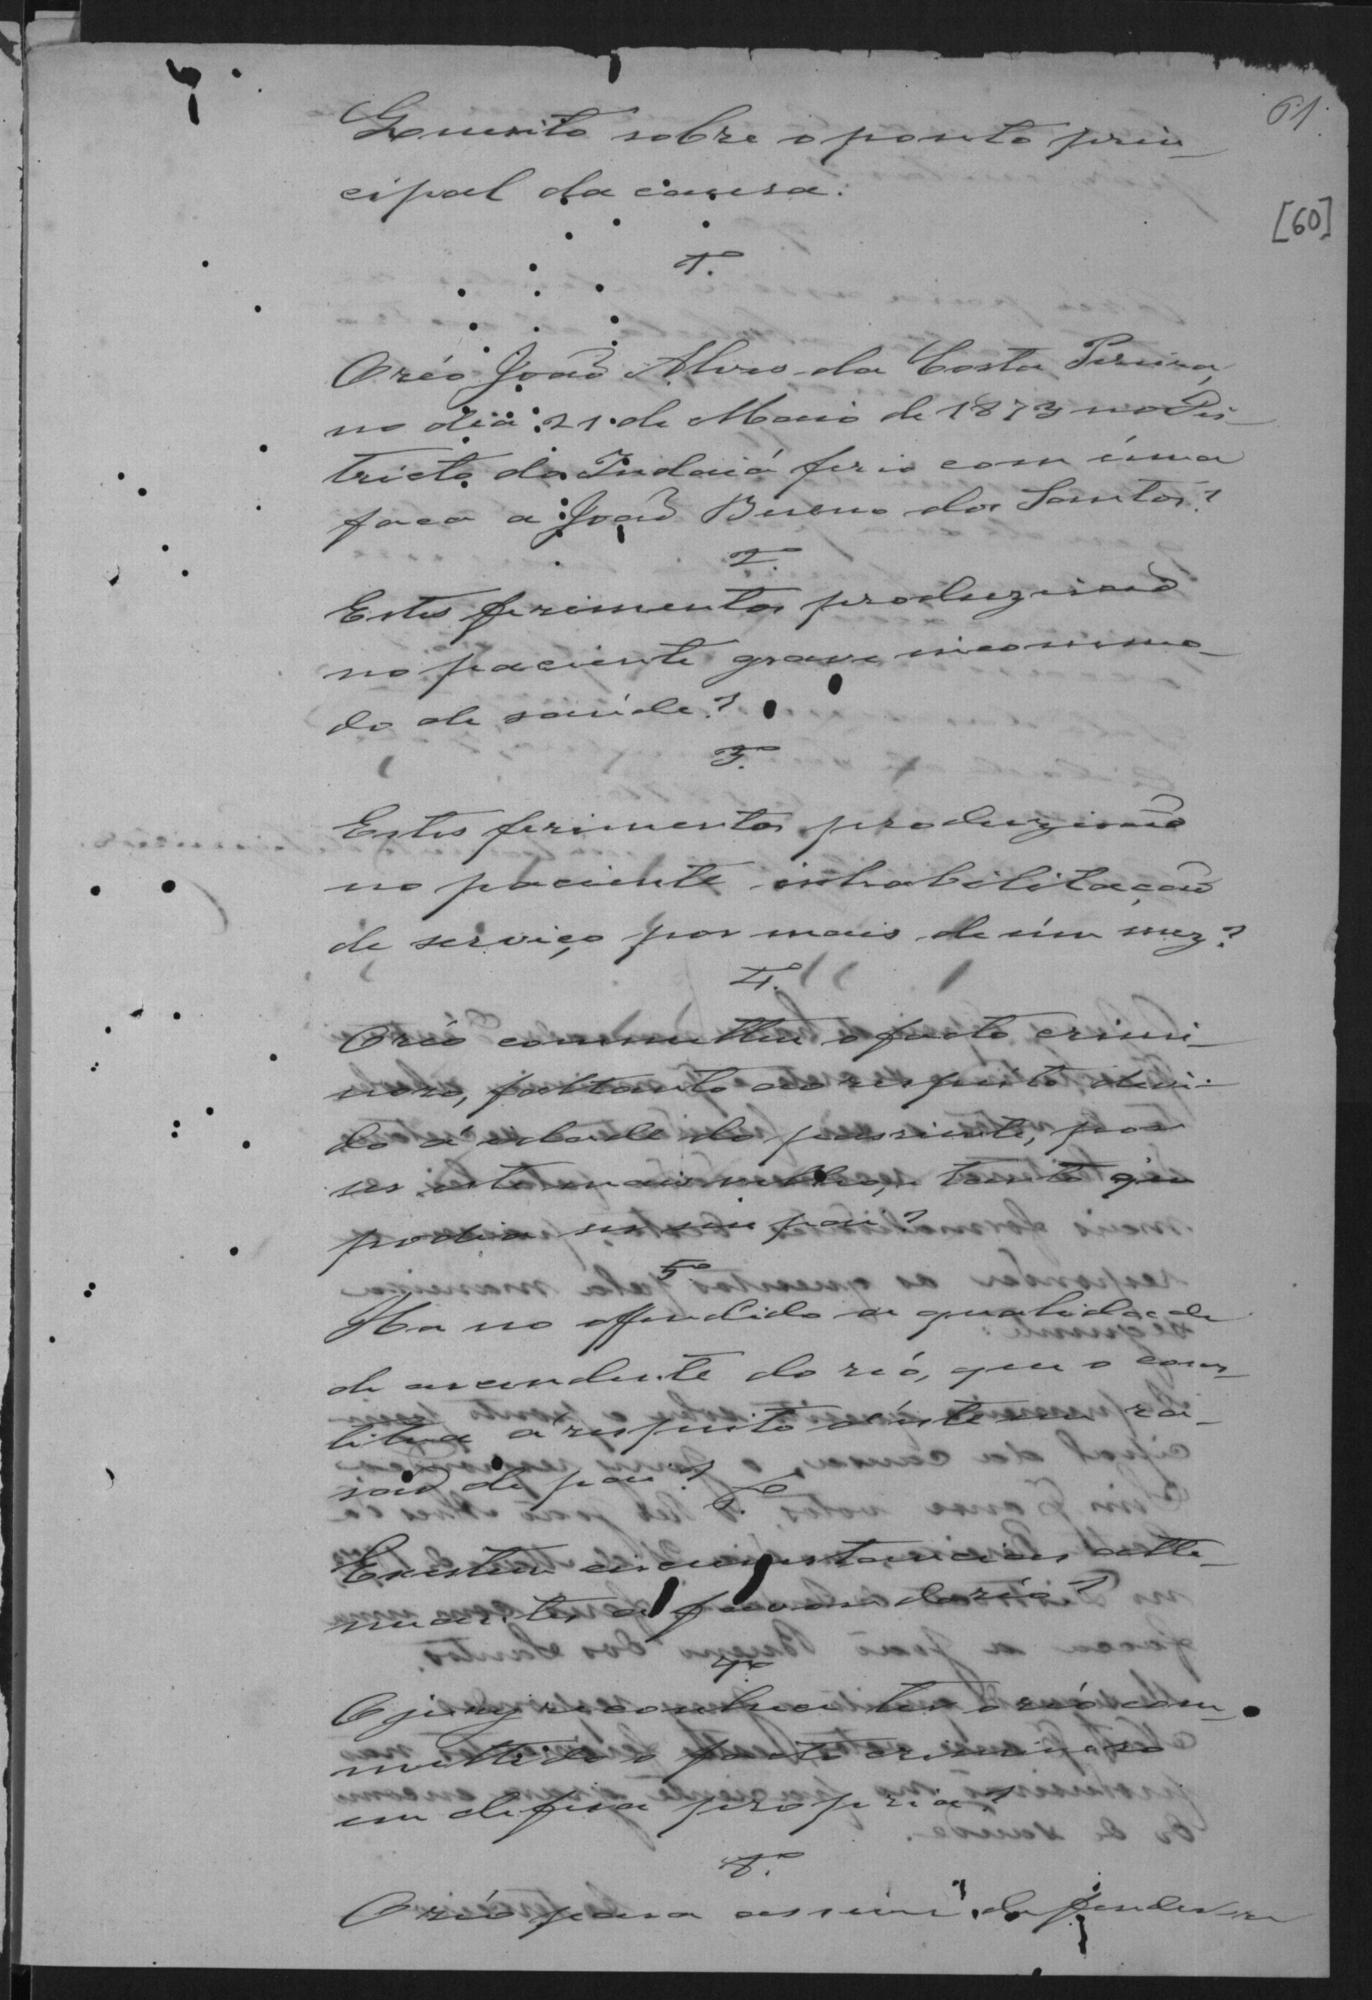 61.
Quesito sobre o ponto prin-
cipal da causa.
[60]
1.º
O réo João Alves da Costa Pereira,
no dia 21 de Maio de 1873 no Dis-
tricto do Indaiá ferio com úma
faca a João Bueno dos Santos?
2.º
Estes ferimentos produzirão
no paciente grave incommo-
do de saúde?
3.º
Estes ferimentos produzirão
no paciente inhabilitação
de serviço por mais de úm mez?
4.º
O réo commetteu o facto crimi-
noso, faltando ao respeito devi-
do á idade do passiente, por
ser este mais velho, tanto que
podia ser seu pai?
5.º
Ha no offendido a qualidade
de ascendente do réo, que o cons-
titua á respeito d'este em ra-
são de pai?
6.º
Existem circunstancias atte-
nuantes a favor do réo?
7.º
O jury reconhece ter o réo com-
mettido o facto criminoso
em defesa propria?
8.º
O réo para assim defender-se